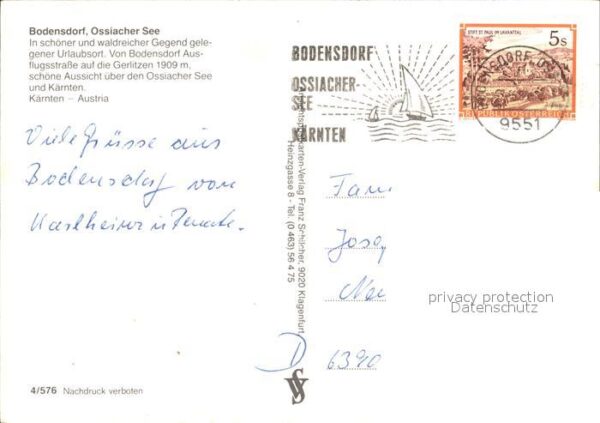 Bodensdorf, Ossiacher See
In schöner und waldreicher Gegend gele-
gener Urlaubsort. Von Bodensdorf Aus-
flugsstraße auf die Gerlitzen 1909 m,
schöne Aussicht über den Ossiacher See
und Kärnten.
Kärnten – Austria
BODENSDORF
OSSIACHER-
SEE
KÄRNTEN
STIFT ST. PAUL IM LAVANTTAL
5s
REPUBLIK ÖSTERREICH
9551
Viele Grüsse aus
Bodensdorf von
Karlheinz u. Renate.
Ansichtspostkarten-Verlag Franz Schilcher, 9020 Klagenfurt
Heinzgasse 8 - Tel. (0 463) 56 4 75
Fam.
Josef
privacy protection
veikkos.com
D 6390
4/576 Nachdruck verboten